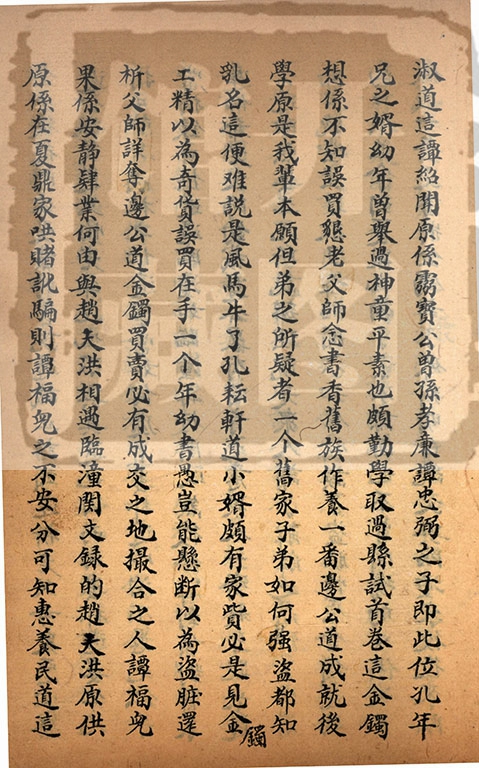 淑道這譚紹聞原係靈寶公曾孫孝廉譚忠弼之子即此位孔年
兄之婿幼年曾舉過神童平素也頗勤學取過縣試首卷這金鐲
想係不知誤買懇老父師念書香舊族作養一番邊公道成就後
學原是我輩本願但弟之所疑者一个舊家子弟如何强盜都知
乳名這便难説是風馬牛了孔耘軒道小婿頗有家貲必是見金鐲
工精以為奇貨誤買在手一个年幼書愚豈能懸斷以為盜賍還
祈父師詳奪邊公道金鐲買賣必有成交之地撮合之人譚福兒
果係安静肄業何由與趙天洪相遇臨潼関文録的趙天洪原供
原係在夏鼎家哄賭訛騙則譚福兒之不安分可知惠養民道這